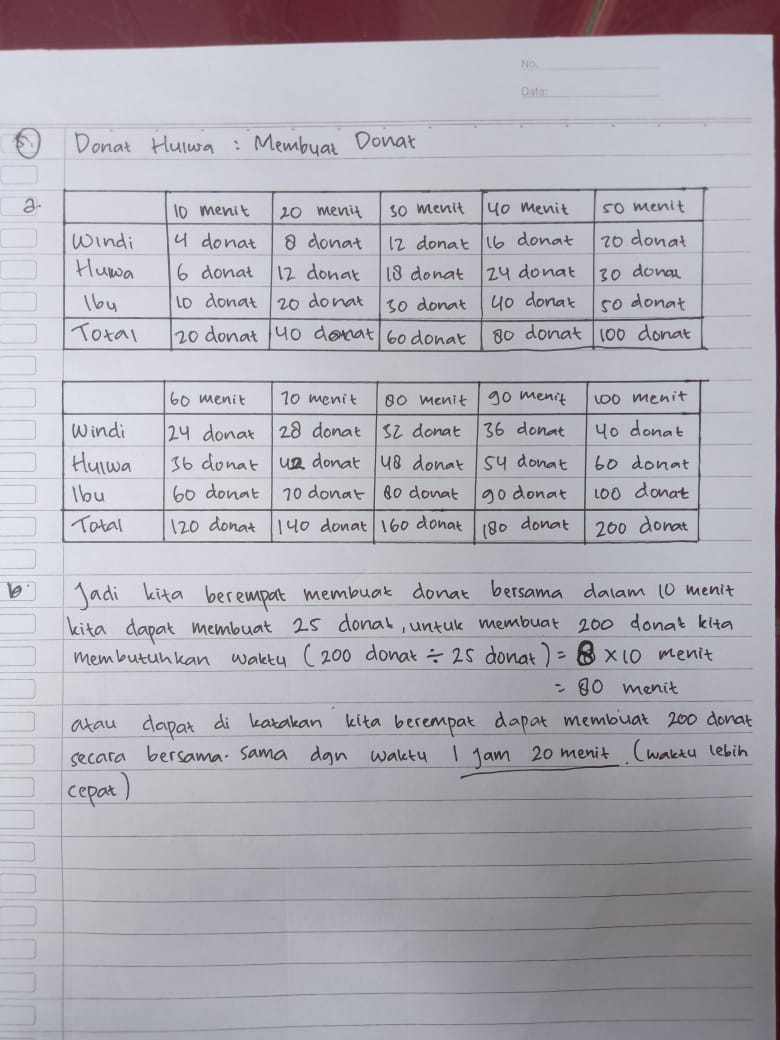 No.
Date:
5. Donat Hulwa : Membuat Donat
a.
10 menit 20 menit 30 menit 40 menit 50 menit
Windi 4 donat 8 donat 12 donat 16 donat 20 donat
Huwa 6 donat 12 donat 18 donat 24 donat 30 donat
Ibu 10 donat 20 donat 30 donat 40 donat 50 donat
Total 20 donat 40 donat 60 donat 80 donat 100 donat
60 menit 70 menit 80 menit 90 menit 100 menit
Windi 24 donat 28 donat 32 donat 36 donat 40 donat
Hulwa 36 donat 42 donat 48 donat 54 donat 60 donat
Ibu 60 donat 70 donat 80 donat 90 donat 100 donat
Total 120 donat 140 donat 160 donat 180 donat 200 donat
b. Jadi kita berempat membuat donat bersama dalam 10 menit
kita dapat membuat 25 donat, untuk membuat 200 donat kita
membutuhkan waktu (200 donat ÷ 25 donat) = 8 × 10 menit
= 80 menit
atau dapat di katakan kita berempat dapat membuat 200 donat
secara bersama-sama dgn waktu 1 jam 20 menit. (waktu lebih
cepat)